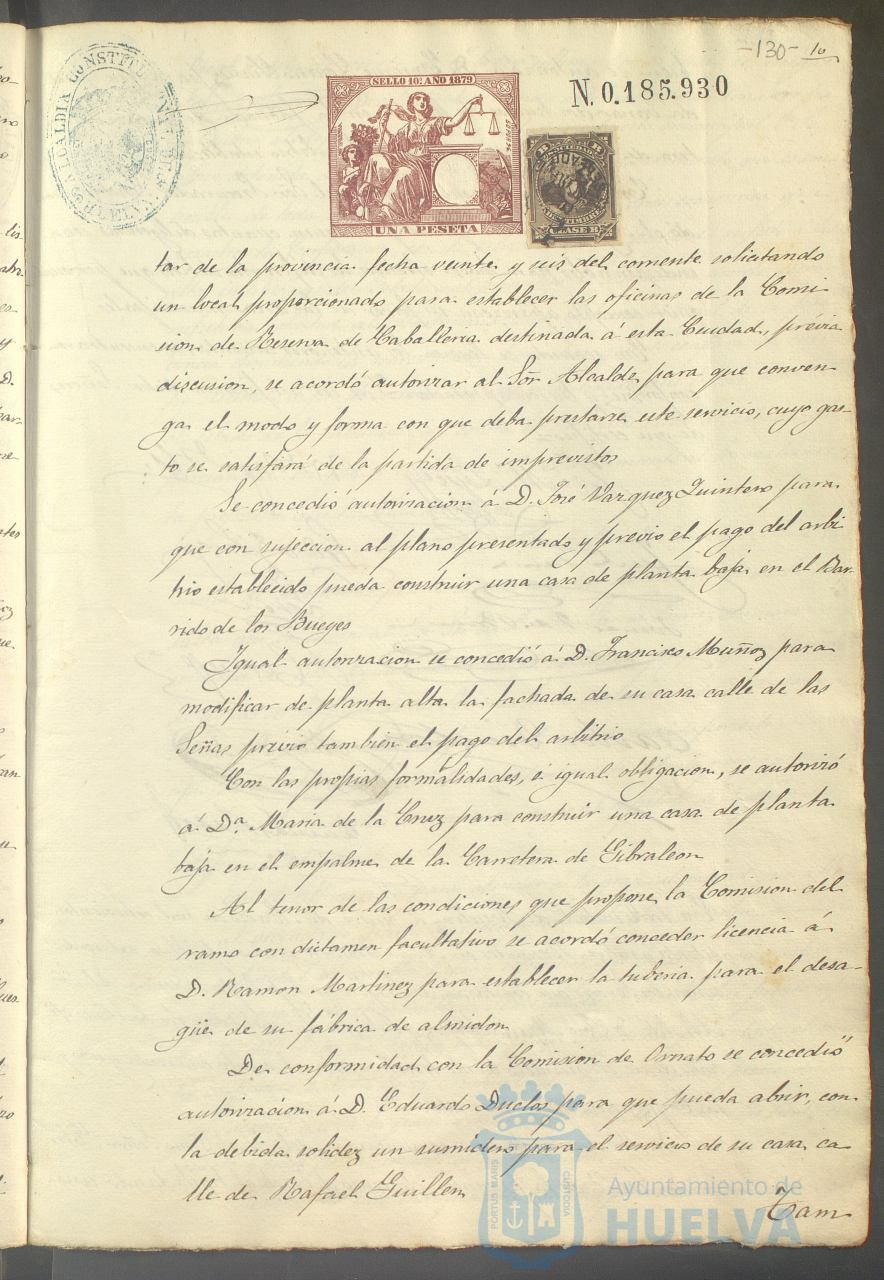 -130- 10
ALCALDIA CONSTITUCIONAL DE HUELVA
SELLO 10º AÑO 1879
UNA PESETA
N. 0.185.930
CLASE 8ª
tar de la provincia fecha veinte y seis del corriente solicitando
un local proporcionado para establecer las oficinas de la Comi-
sion de Reserva de Caballeria destinada á esta Ciudad, prévia
discusion, se acordó autorizar al Sõr Alcalde para que conven-
ga el modo y forma con que deba prestarse este servicio, cuyo gas-
to se satisfará de la partida de imprevistos
Se concedió autorizacion á D. José Vazquez Quintero para
que con sujecion al plano presentado y previo el pago del arbi
trio establecido pueda construir una casa de planta baja en el Bar-
rido de los Bueyes
Igual autorizacion se concedió á D. Francisco Muñoz para
modificar de planta alta la fachada de su casa calle de las
Señas previo tambien el pago del arbitrio
Con las propias formalidades, é igual obligacion, se autorizó
á Dª Maria de la Cruz para construir una casa de planta
baja en el empalme de la Carretera de Gibraleon
Al tenor de las condiciones que propone la Comision del
ramo con dictamen facultativo se acordó conceder licencia á
D. Ramon Martinez para establecer la tuberia para el desa-
güe de su fábrica de almidon
De conformidad con la Comision de Ornato se concedió
autorizacion á D. Eduardo Duclos para que pueda abrir, con
la debida solidez un sumidero para el servicio de su casa ca
lle de Rafael Guillen
Tam
PORTUS MARIS CUSTODIA
Ayuntamiento de
HUELVA